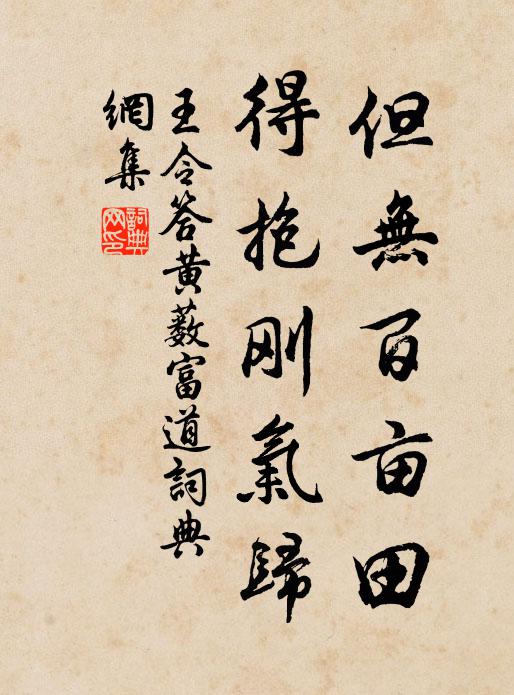 但無百亩田
得抱刚氣歸
王令答黄薮富道詞典
網集
詞典
网印